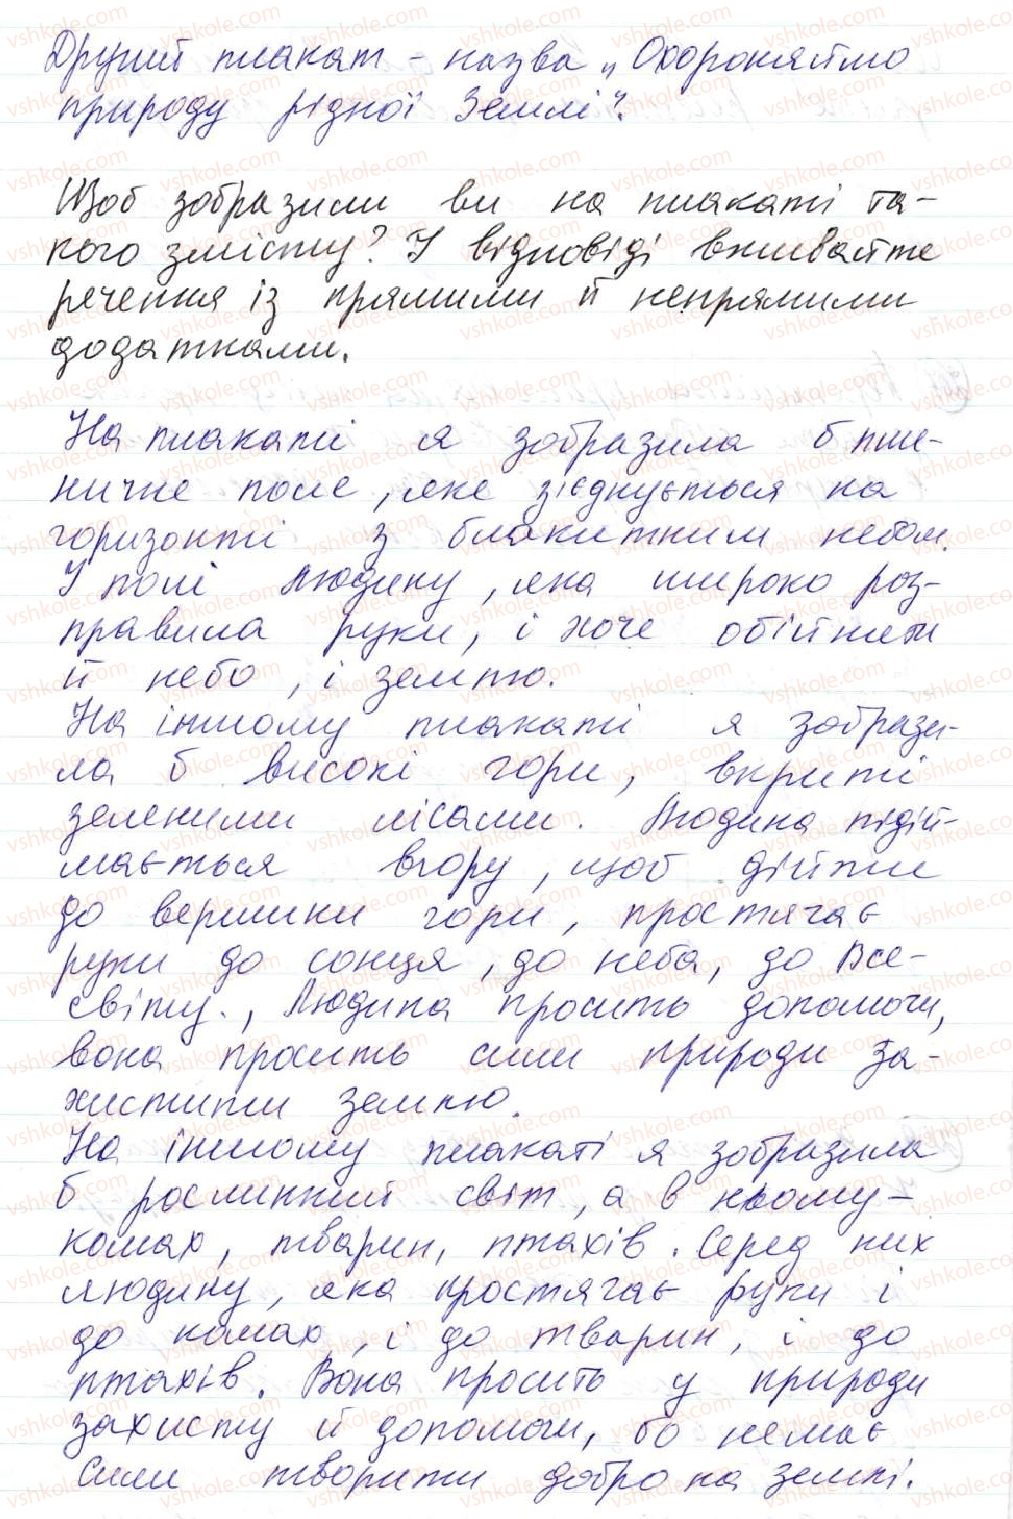 Другий плакат - назва „Охороняймо
природу рідної Землі".
Щоб зобразили ви на плакаті та-
кого змісту? У відповіді вживайте
речення із прямими й непрямими
додатками.
На плакаті я зобразила б пше-
ничне поле, яке зієднується на
горизонті з блакитним небом.
У полі людину, яка широко роз-
правила руки, і хоче обійняти
й небо, і землю.
На іншому плакаті я зобрази-
ла б високі гори, вкриті
зеленими лісами. Людина підій-
мається вгору, щоб дійти
до вершини гори, простягає
руки до сонця, до неба, до Все-
світу., Людина просить допомоги,
вона просить сили природи за-
хистити землю.
На іншому плакаті я зобразила
б рослинний світ, а в ньому-
комах, тварин, птахів. Серед них
людину, яка простягає руки і
до комах, і до тварин, і до
птахів. Вона просить у природи
захисту й допомоги, бо немає
сили творити добро на землі.